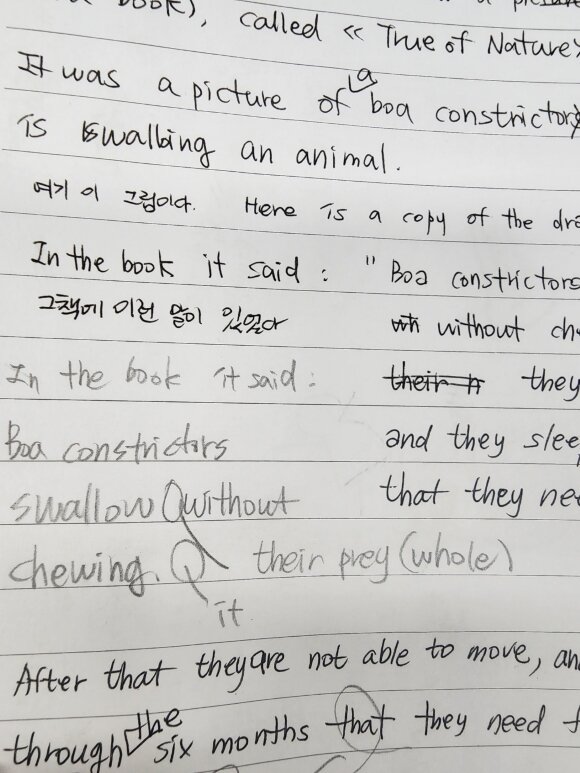 book), called << True of Nature>
It was a picture of a boa constrictor
is swalling an animal.
여기 이 그림이다. Here is a copy of the
In the book it said : " Boa constrictors
그책에 이런 말이 있었다 without
In the book it said : they
Boa constrictors and they
swallow without that they
chewing. their prey (whole)
it
After that they are not able to move,
through the six months that they need